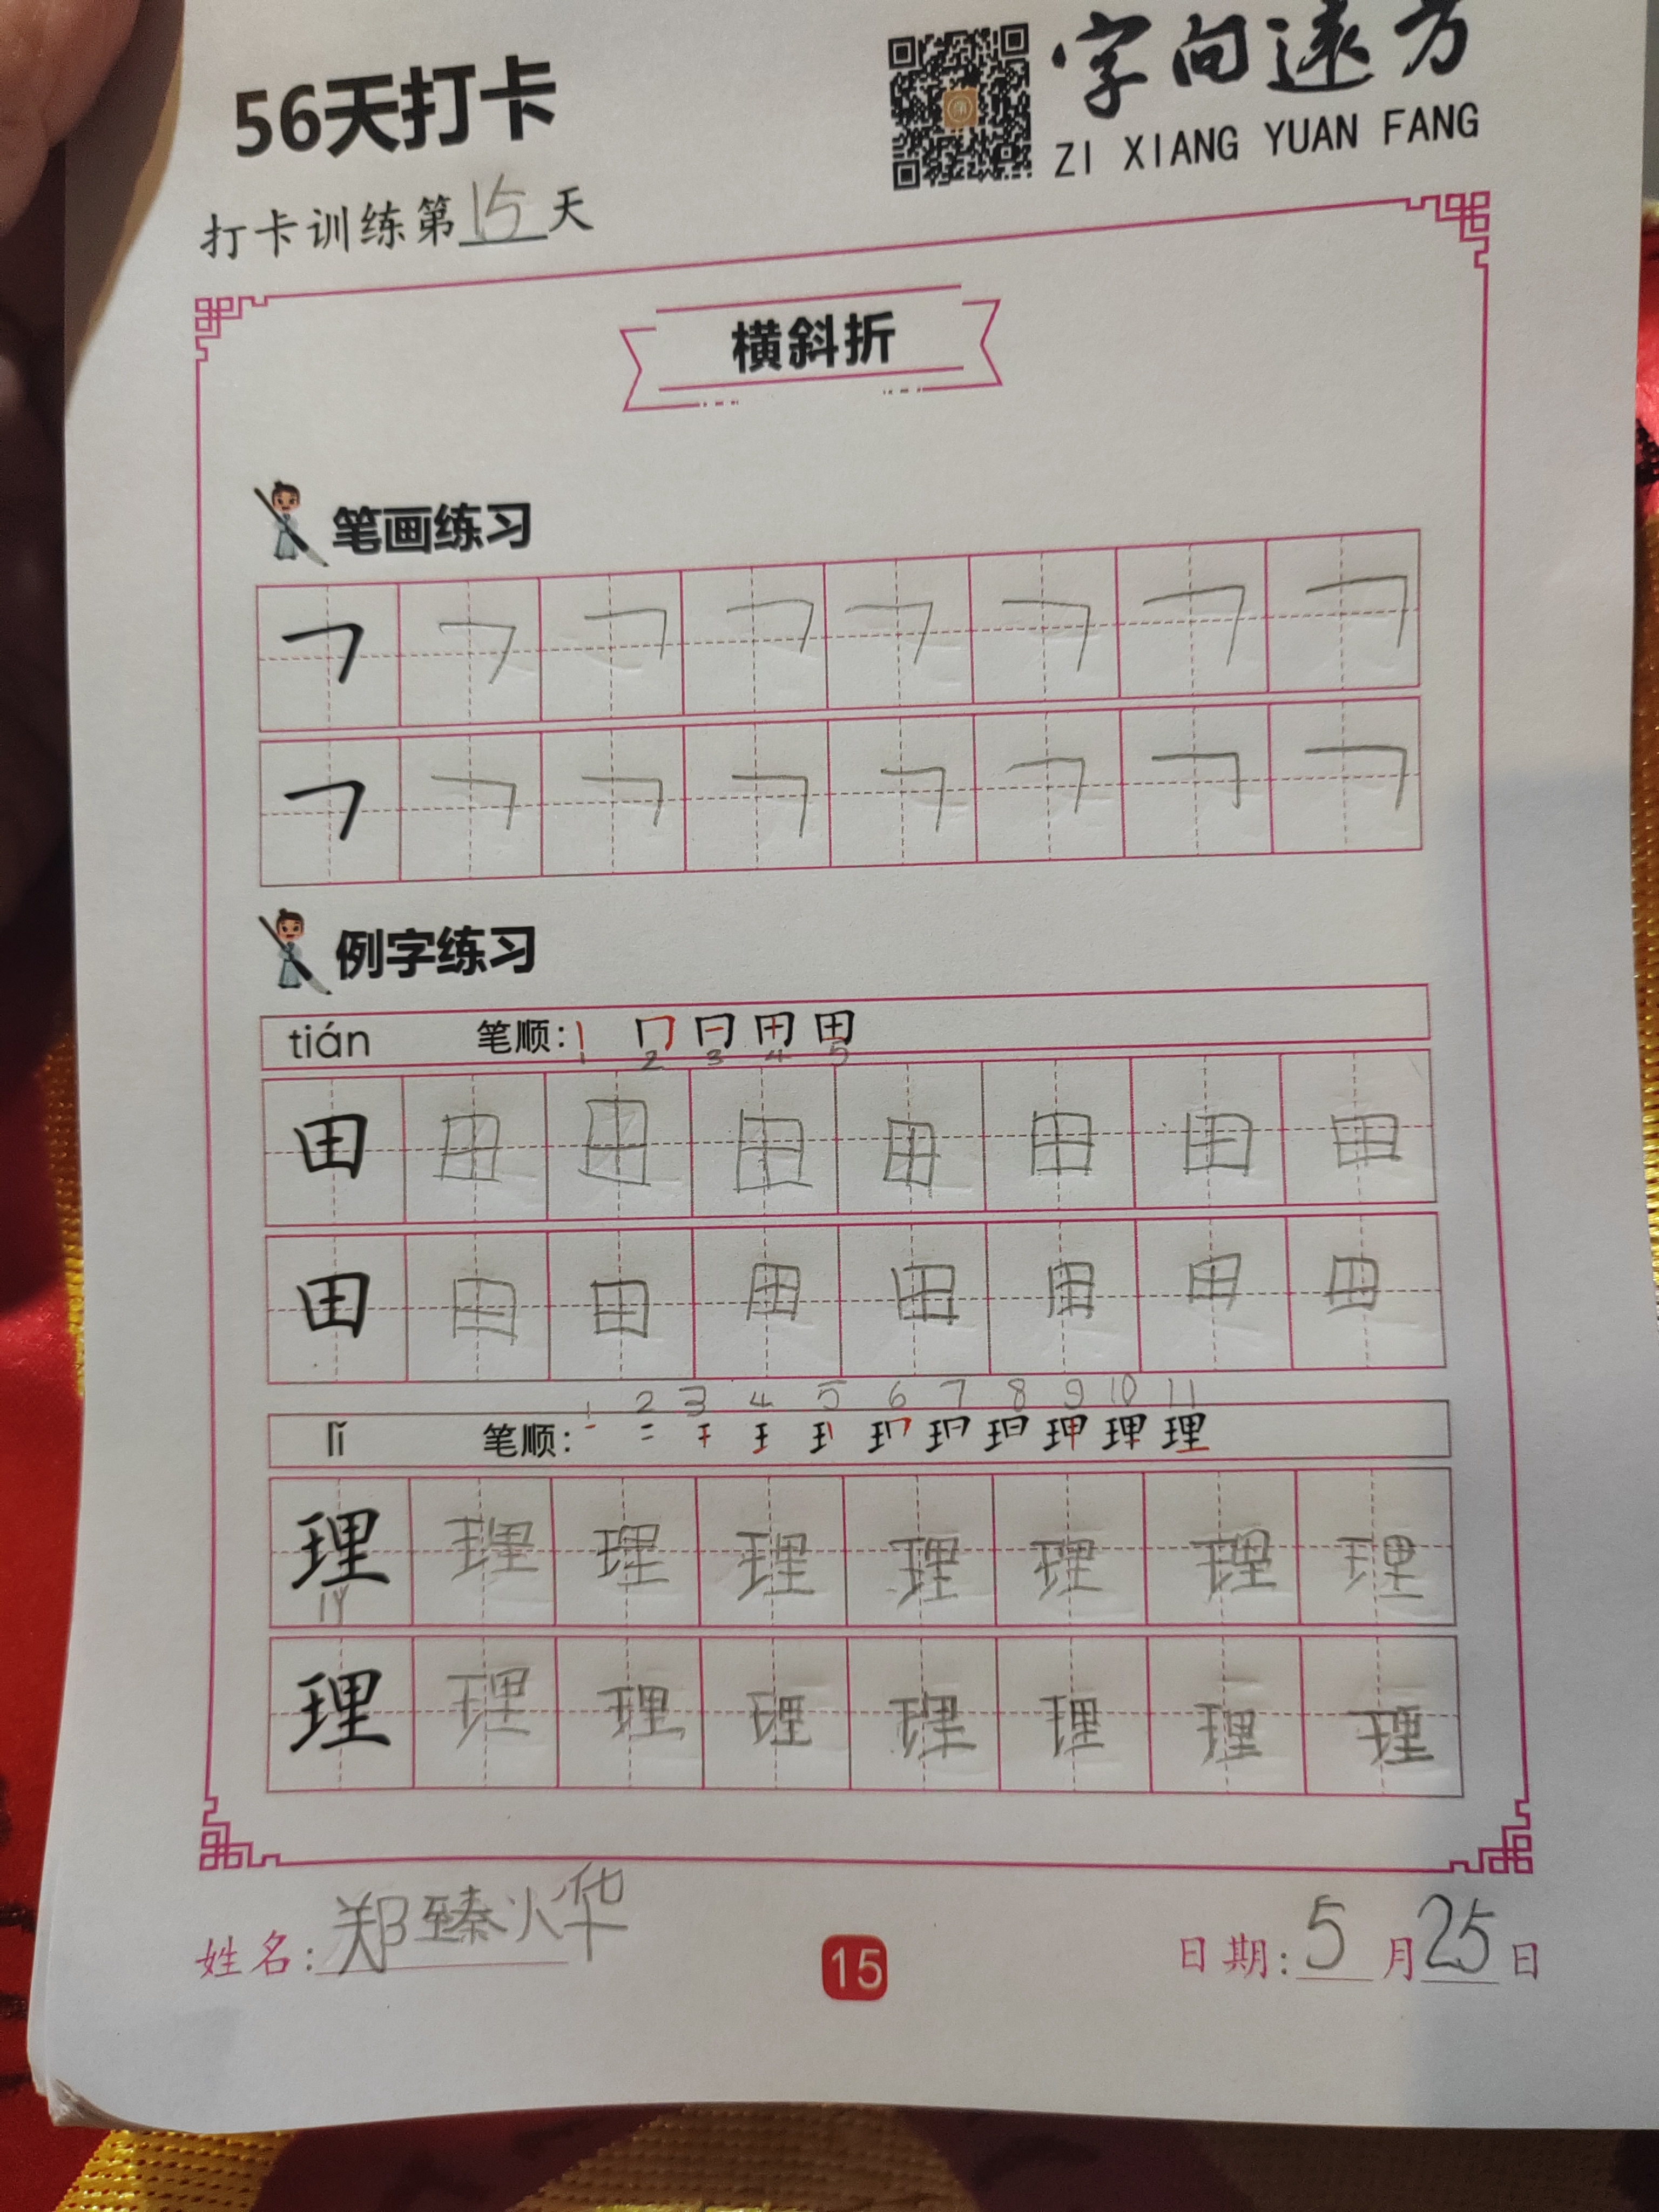 56天打卡
字向远方
ZI XIANG YUAN FANG
打卡训练第15天
横斜折
笔画练习
㇕ ㇕ ㇕ ㇕ ㇕ ㇕ ㇕ ㇕
㇕ ㇕ ㇕ ㇕ ㇕ ㇕ ㇕ ㇕
例字练习
tián 笔顺:
1 2 3 4 5
田 田 田 田 田 田 田 田
田 田 田 田 田 田 田 田
1 2 3 4 5 6 7 8 9 10 11
lǐ 笔顺:
理 理 理 理 理 理 理 理
理 理 理 理 理 理 理 理
姓名:郑臻烨
15
日期:5月25日